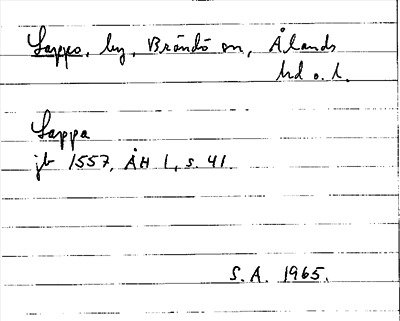 Lappo, by, Brändö sn, Ålands
hd o. l.
Lappa
jb 1557, ÅH 1, s. 41.
S.A. 1965.